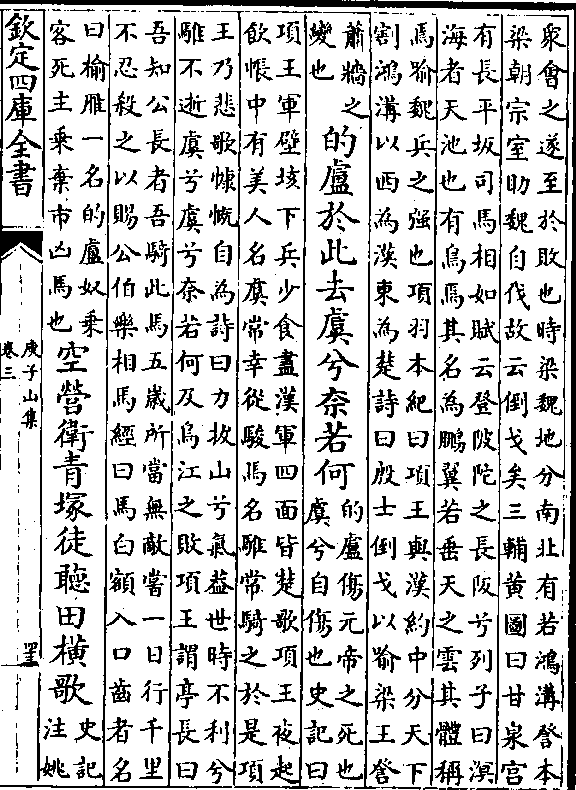 衆會之遂至於敗也時梁魏地分南北有若鴻溝詧本
梁朝宗室助魏自伐故云倒戈矣三輔黄圖曰甘泉宫
有長平坂司馬相如賦云登陂陀之長阪兮列子曰溟
海者天池也有鳥焉其名為鵬翼若垂天之雲其體稱
焉喻魏兵之强也項羽本紀曰項王與漢約中分天下
割鴻溝以西為漢東為楚詩曰殷士倒戈以喻梁王詧
蕭牆之
變也
的盧於此去虞兮奈若何
的盧傷元帝之死也
虞兮自傷也史記曰
項王軍壁垓下兵少食盡漢軍四面皆楚歌項王夜起
飲帳中有美人名虞常幸從駿馬名騅常騎之於是項
王乃悲歌慷慨自為詩曰力拔山兮氣葢世時不利兮
騅不逝虞兮虞兮奈若何及烏江之敗項王謂亭長曰
吾知公長者吾騎此馬五歲所當無敵嘗一日行千里
不忍殺之以賜公伯樂相馬經曰馬白額入口齒者名
曰榆雁一名的盧奴乗
客死主乗棄市凶馬也
空營衛青塚徒聴田横歌
史記
注姚
欽定四庫全書
庾子山集
卷三